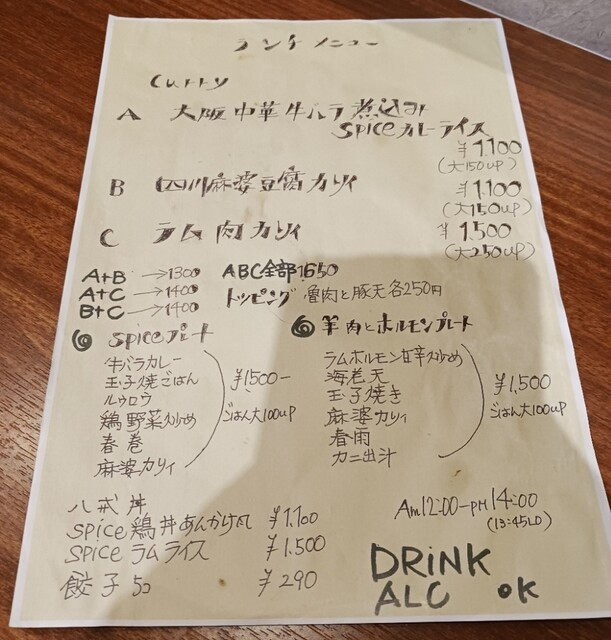 ランチメニュー
Curry
A 大阪中華牛バラ煮込み
spiceカレーライス
¥1,100
(大150UP)
B 四川麻婆豆腐カリィ ¥1,100
(大150UP)
C ラム肉カリィ ¥1,500
(大250UP)
A+B →1300 ABC全部1650
A+C →1400 トッピング 魯肉と豚天各250円
B+C →1400
spiceプレート
牛バラカレー
玉子焼ごはん
ルゥロウ
鶏野菜炒め
春巻
麻婆カリィ
¥1,500-
ごはん大100UP
羊肉とホルモンプレート
ラムホルモン甘辛炒め
海老天
玉子焼き
麻婆カリィ
春雨
カニ出汁
¥1,500
ごはん大100UP
八戒丼
spice鶏丼あんかけ風 ¥1,100
spiceラムライス ¥1,500
餃子5コ ¥290
Am12:00-PM14:00
(13:45LO)
DRiNK
ALC OK